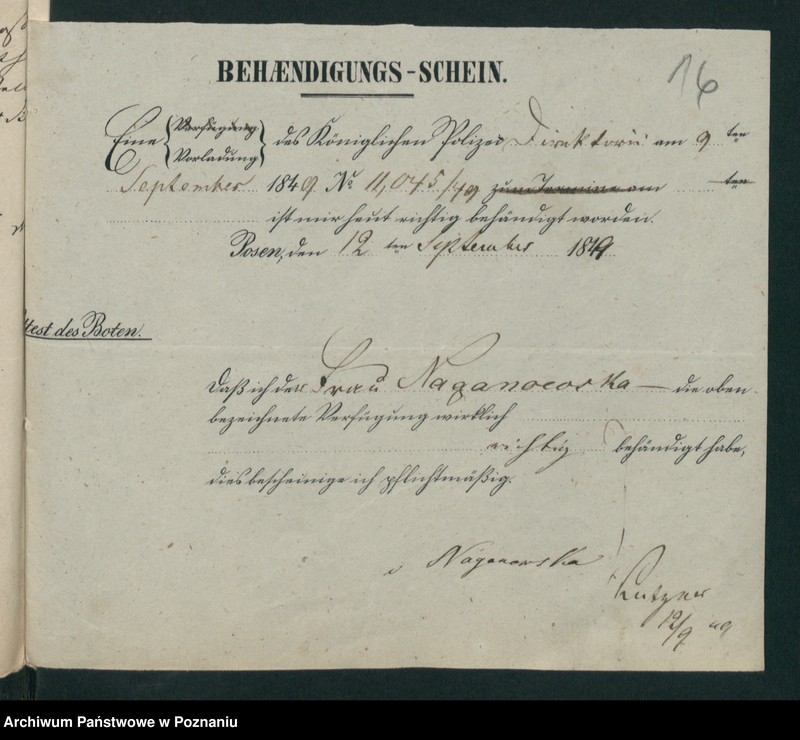 BEHÆNDIGUNGS-SCHEIN.
16
Eine { Verfügung Vorladung } des Königlichen Polizei Direktorii am 9 ten
September 1849 No 11,045/49 zum Termine am ten
ist mir heut richtig behändigt worden.
Posen, den 12 ten September 1849
ttest des Boten.
Daß ich der Frau Naganowska — die oben-
bezeichnete Verfügung wirklich
richtig behändigt habe,
dies bescheinige ich pflichtmäßig.
Naganowska
12/9 49
Archiwum Państwowe w Poznaniu